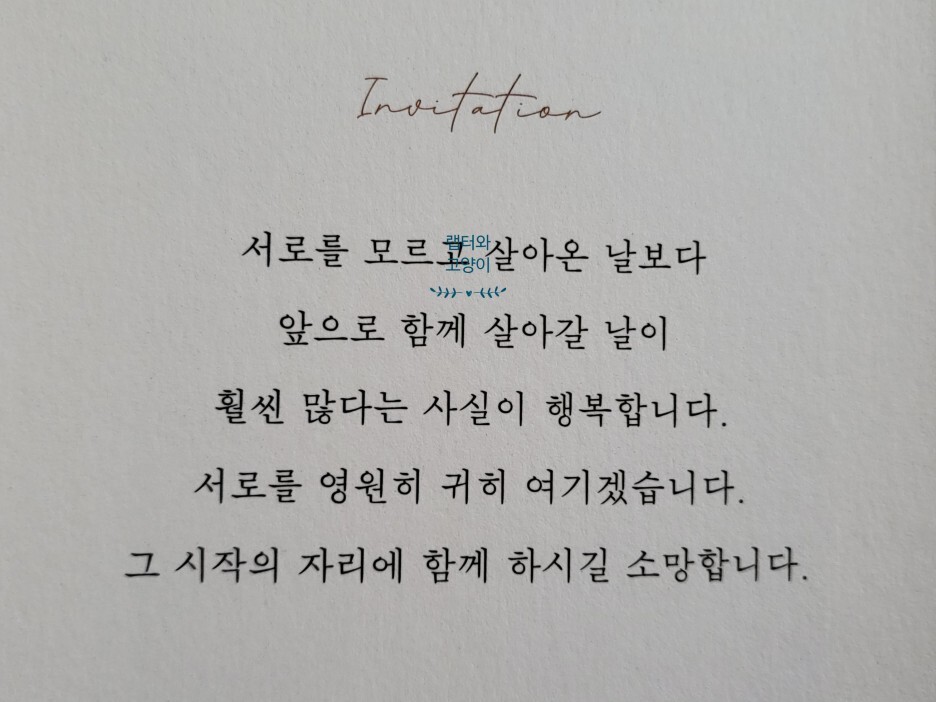 Invitation
서로를 모르고 살아온 날보다
랩터와
고양이
앞으로 함께 살아갈 날이
훨씬 많다는 사실이 행복합니다.
서로를 영원히 귀히 여기겠습니다.
그 시작의 자리에 함께 하시길 소망합니다.